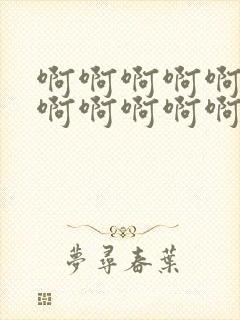 啊啊啊啊啊
啊啊啊啊啊
夢尋春葉